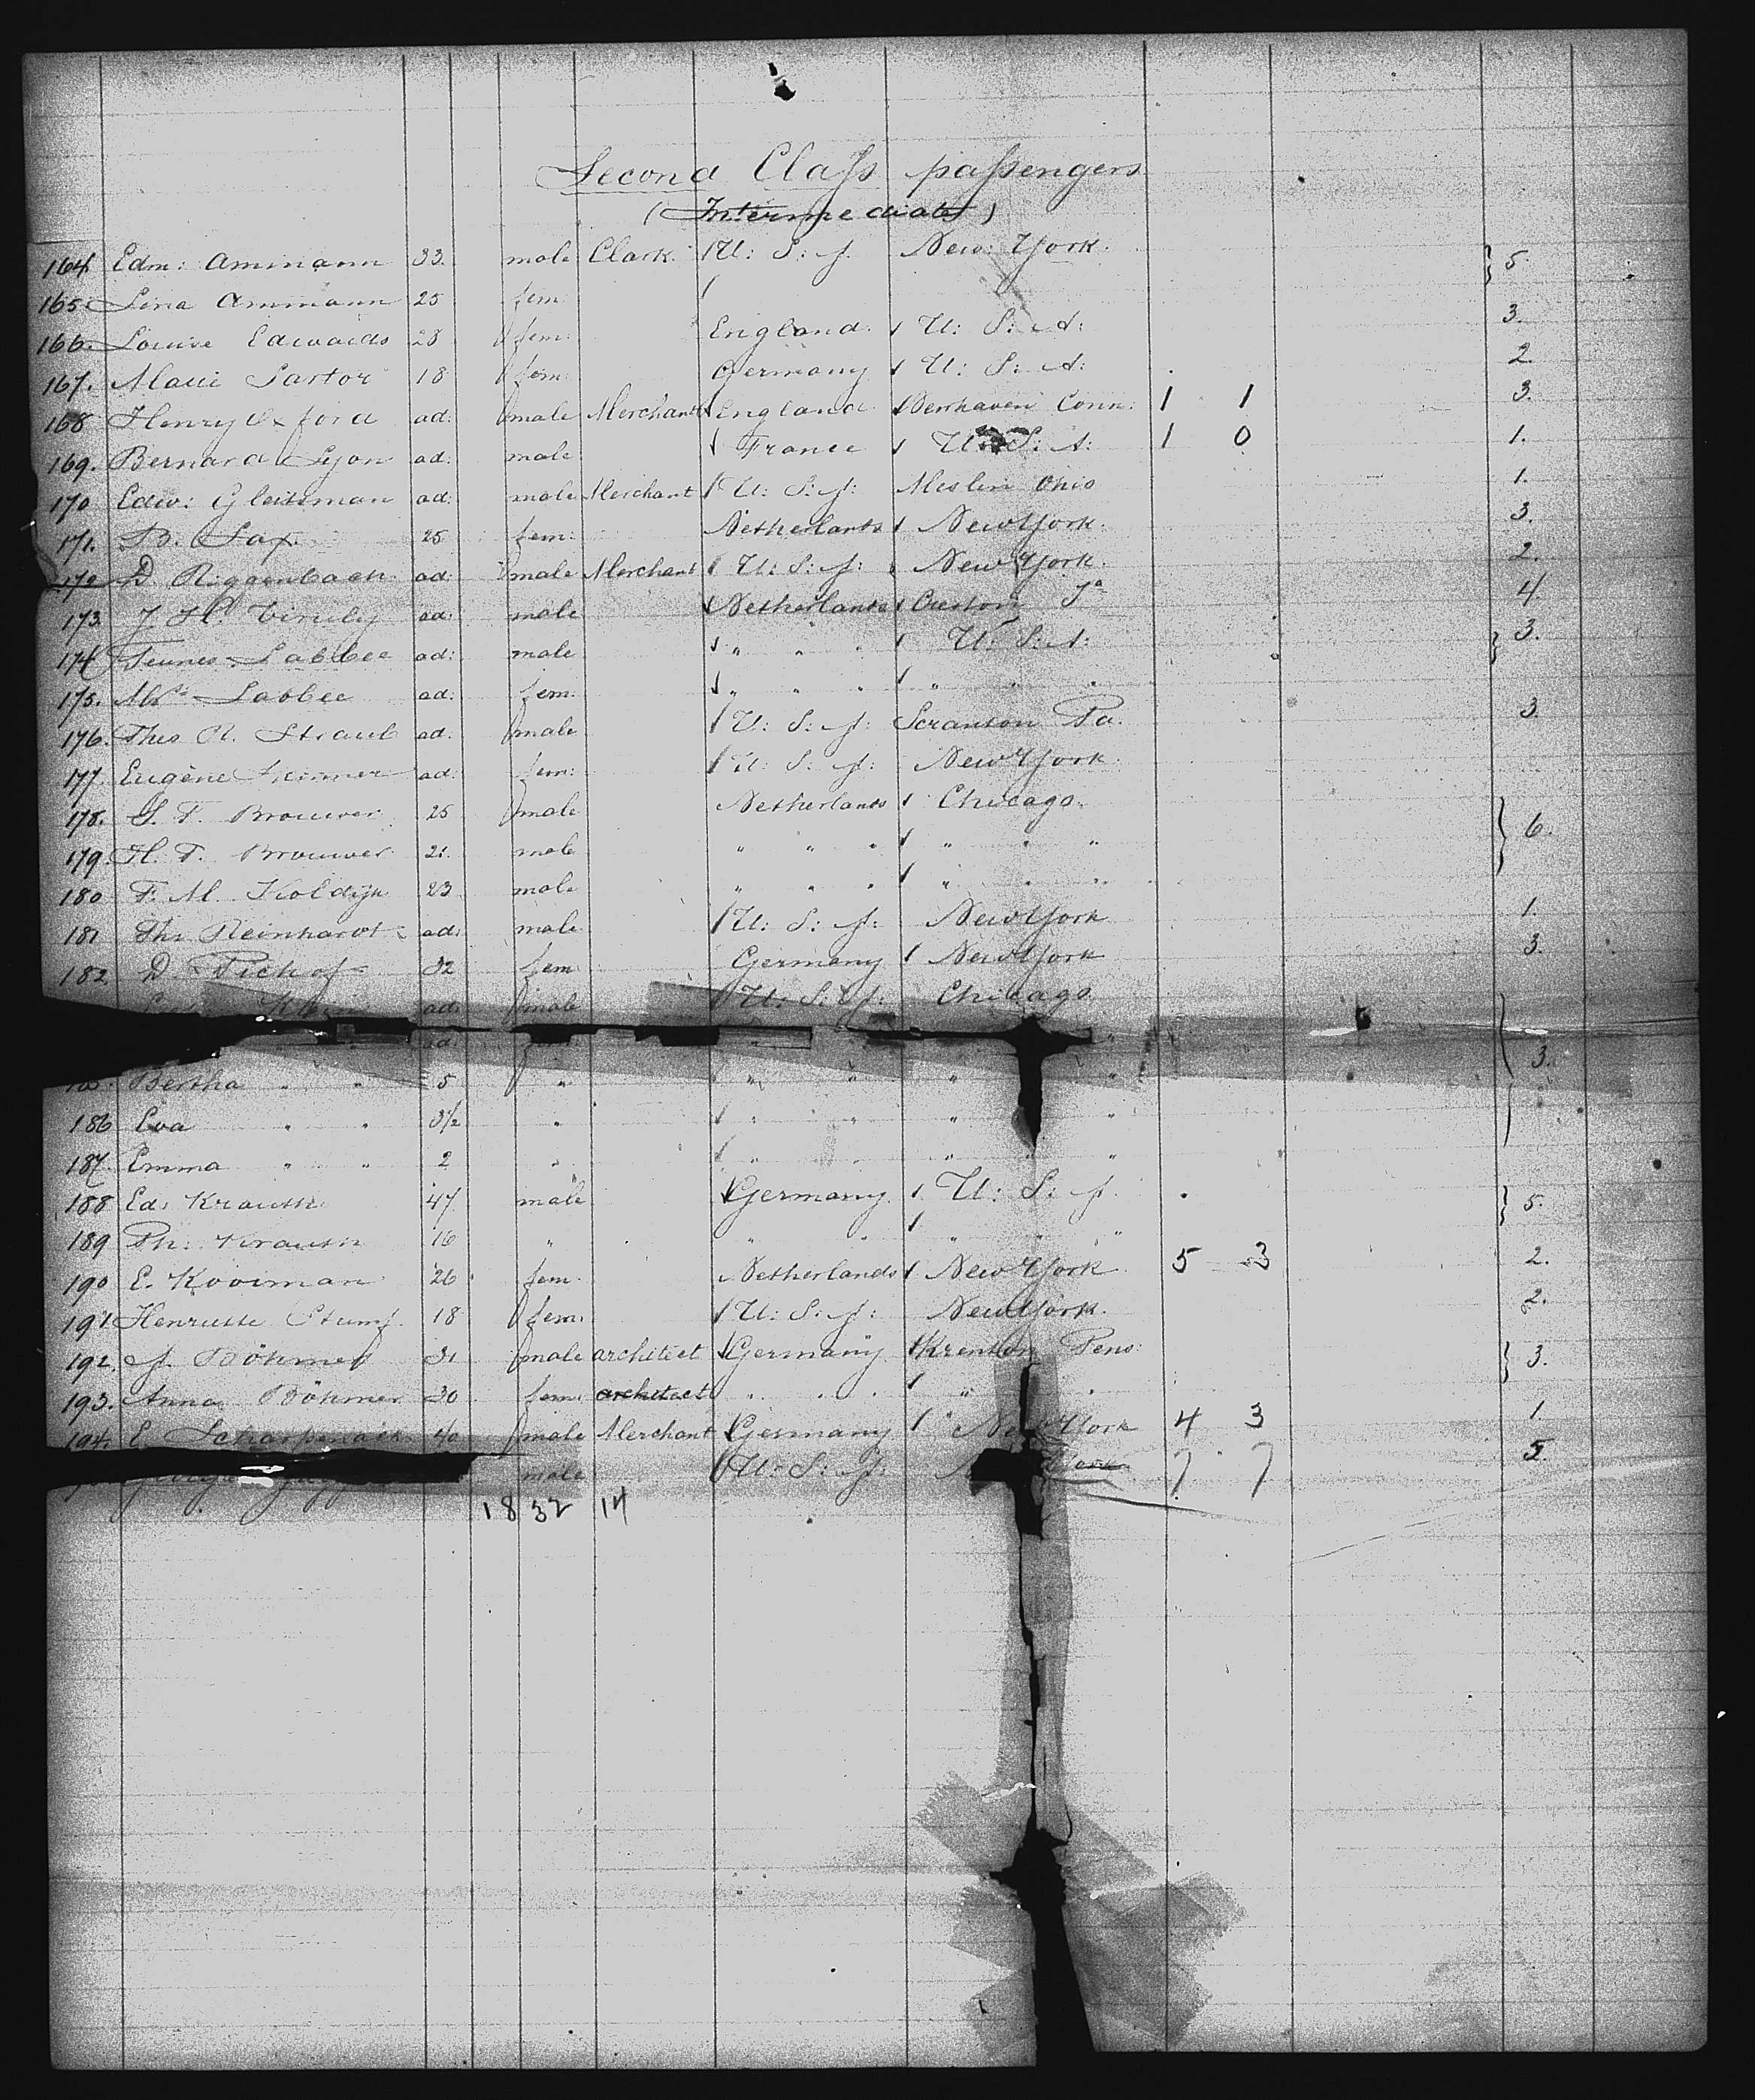 Second Class passengers
(Intermediate)
164 Edm: Ammann 33 male Clark U: S: A. New: York. 5.
165 Lina Ammann 25 fem
166. Louise Edwards 28 fem: England. U: S: A: 3.
167. Marie Sartor 18 fem: Germany U: S: A: 2
168 Henry Oxford ad: male Merchant England Conn: 1 1 3.
169. Bernard Lyon ad: male France U: S: A: 1 0 1.
170 Edw: Gleitsman ad: male Merchant U: S: A: Ohio 1.
171. B. Sax. 25 fem: Netherlands New York. 3.
172 D. Riggenbach ad: male Merchant U: S: A: New York. 2.
173 J. H. ad: male Netherlands Creston Ja 4.
174 Teunes Labbee ad: male " " " U: S: A: 3.
175. Mrs Labbee ad: fem. " " " " " "
176. Theo R. Straub ad: male U: S: A: Scranton Pa. 3.
177. Eugène ad: fem: U: S: A: New York.
178. G. F. Brouwer 25 male Netherlands Chicago. 6.
179. H. F. Brouwer 21. male " " " " " "
180 F. M. Koldijk 23 male " " " " " "
181 Th: Reinhardt ad: male U: S: A: New York 1.
182 D. Pichof 32 fem Germany New York 3.
ad: male U: S: A: Chicago
ad: " " 3.
Bertha " " 5 " " " " "
186 Eva " " 3½ " " " " "
187. Emma " " 2 " " " " "
188 Ed: Krauth 47 male Germany U: S: A. 5.
189 Th: Krauth 16 " " " " " "
190 E. Kooiman 26 fem. Netherlands New York 5 3 2.
191. Henriette Stumpf. 18 fem. U: S: A: New York. 2.
192. A. Böhmer 31 male architect Germany Pens: 3.
193. Anna Böhmer 30 fem: architect " " " " "
194. E. 40 male Merchant Germany New York 4 3 1
male U: S: A: York 7 7 5.
18 32 14